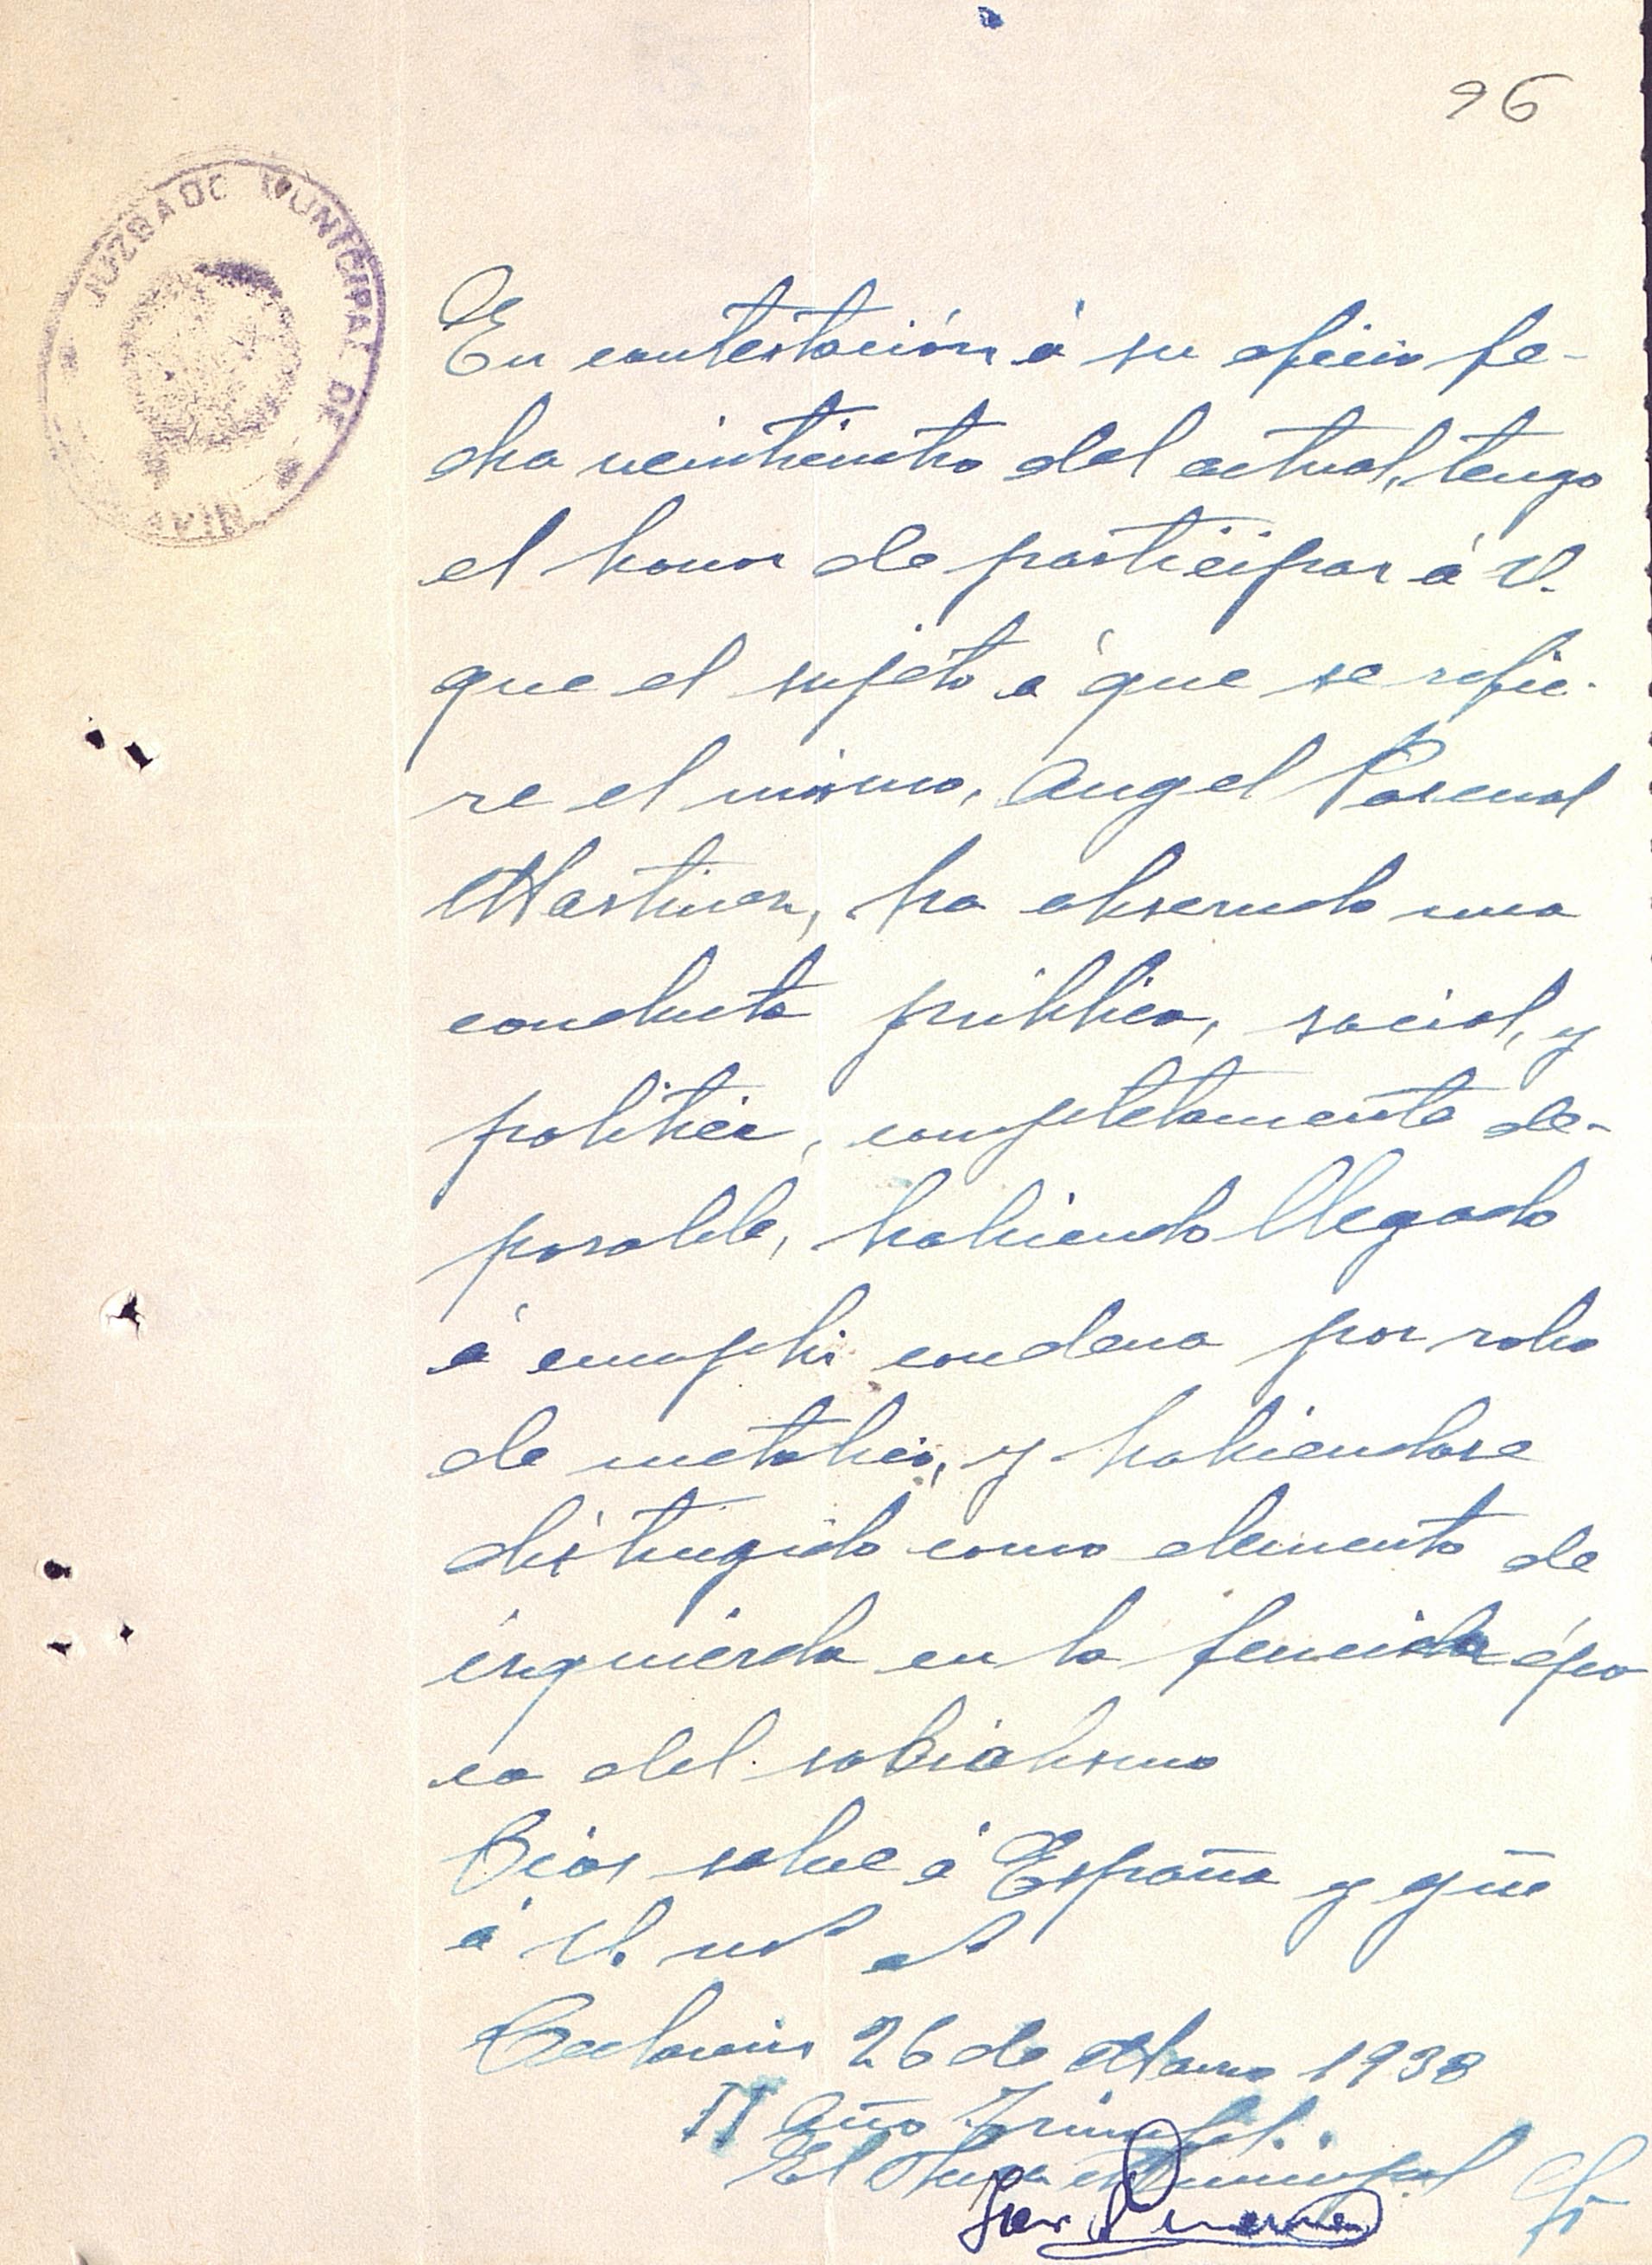 96
JUZGADO MUNICIPAL DE
En contestación á su oficio fe-
cha veinticuatro del actual, tengo
el honor de participar á V.
que el sujeto á que se refie-
re el mismo, Angel Pascual
Martinez, ha observado una
conducta pública, social, y
politica, completamente de-
porable, habiendo llegado
á cumplir condena por robo
de metalico, y habiendose
distinguido como elemento de
izquierda en la fenecida épo
ca del socialismo
Dios salve á España y gūe
á V. ms as
26 de Marzo 1938
II Año Triunfal.
El Juez Municipal